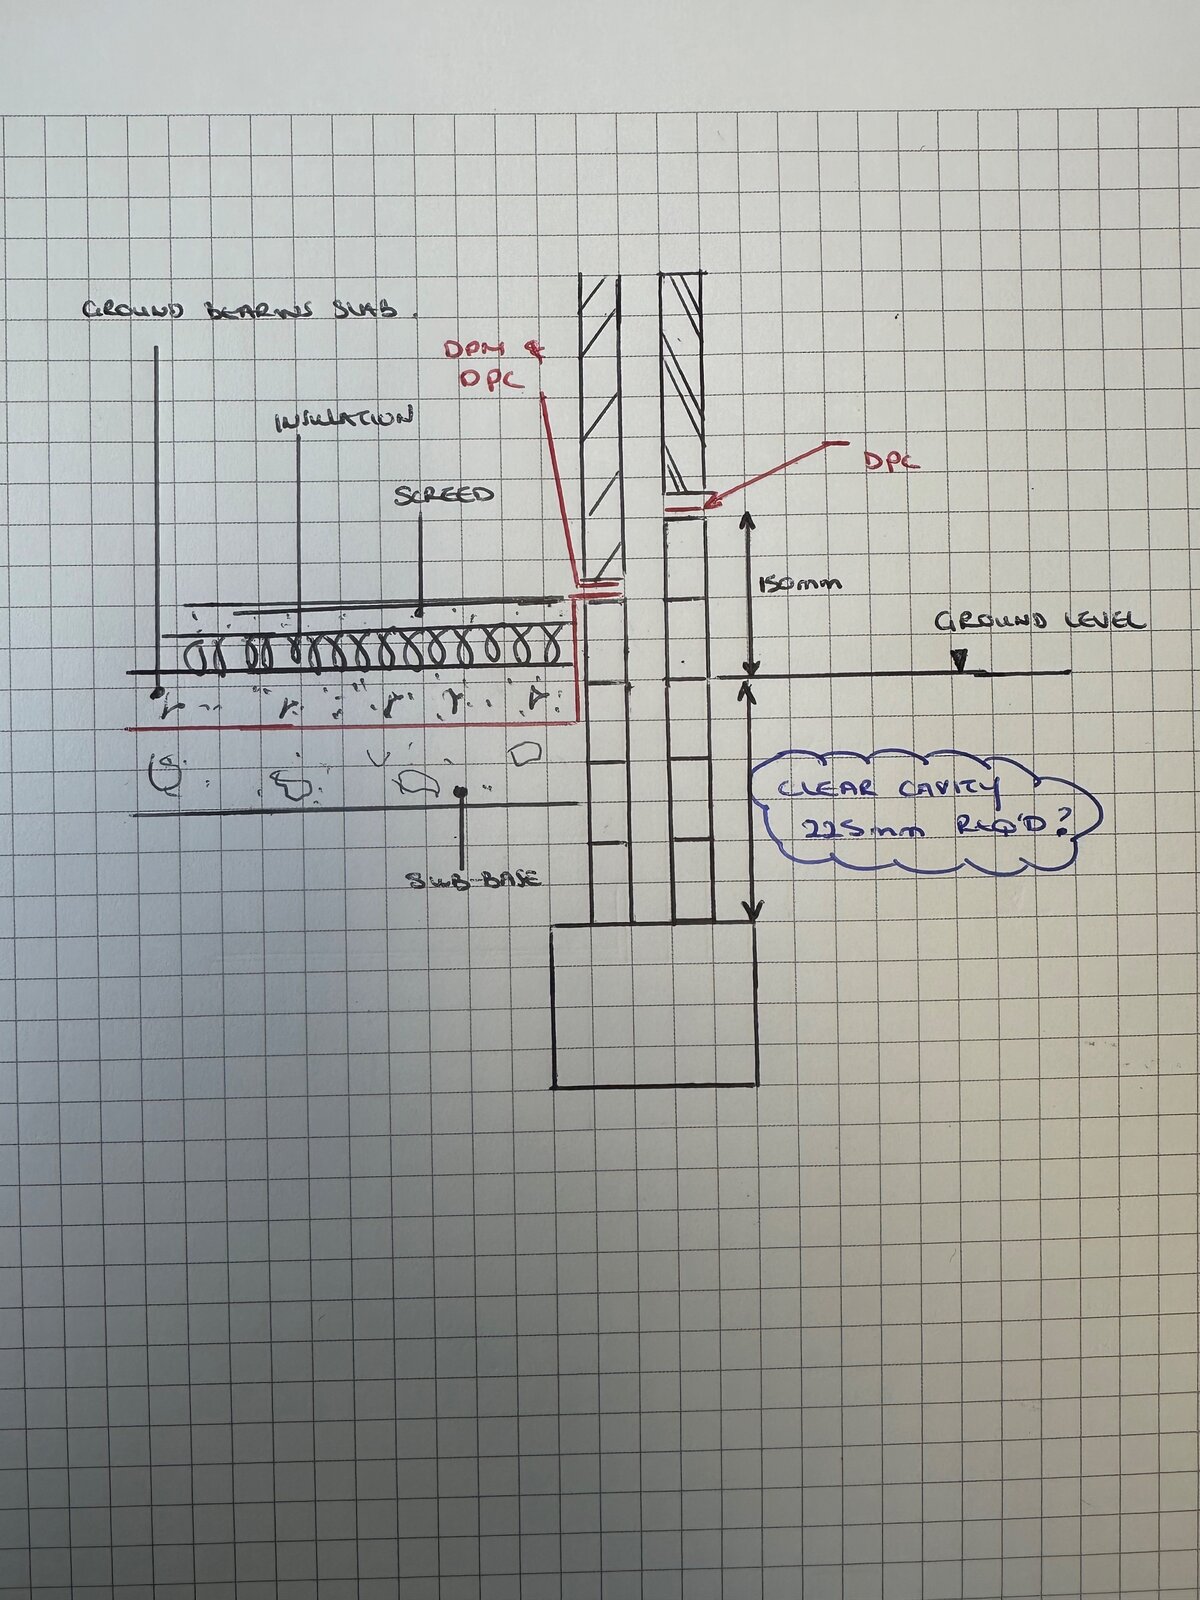 GROUND BEARING SLAB.
DPM &
DPC
INSULATION
DPC
SCREED
150mm
GROUND LEVEL
CLEAR CAVITY
225mm REQ'D?
SUB-BASE